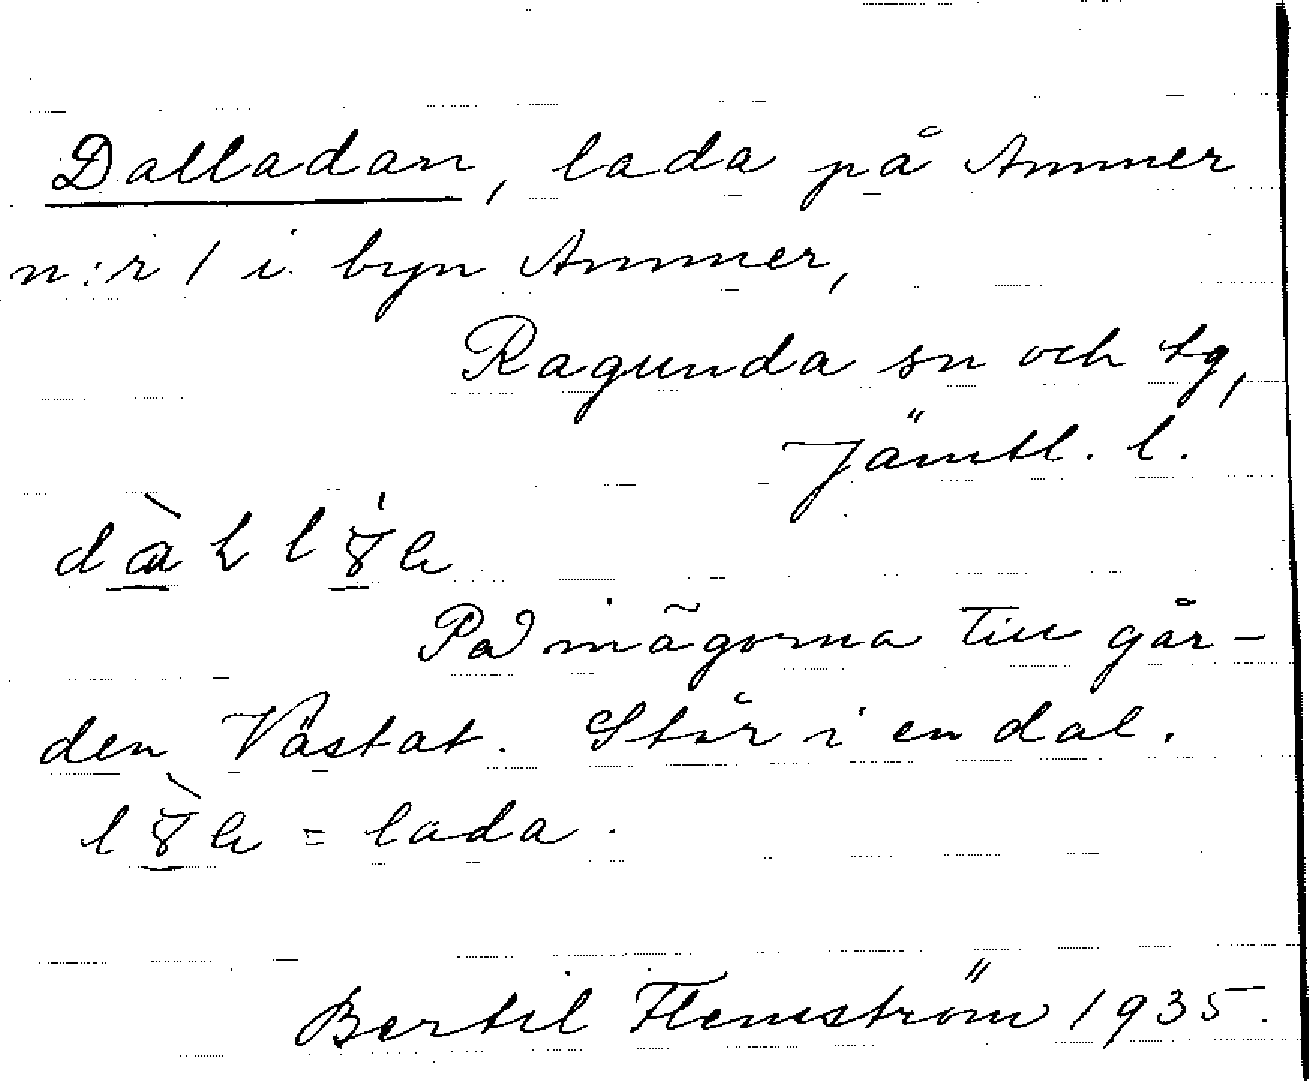 Dalladan, lada på Ammer
n:r 1 i byn Ammer,
Ragunda sn och tg,
Jämtl. l.
På inägorna till går-
den Västat. Står i en dal.
= lada.
Bertil Flemström 1935.